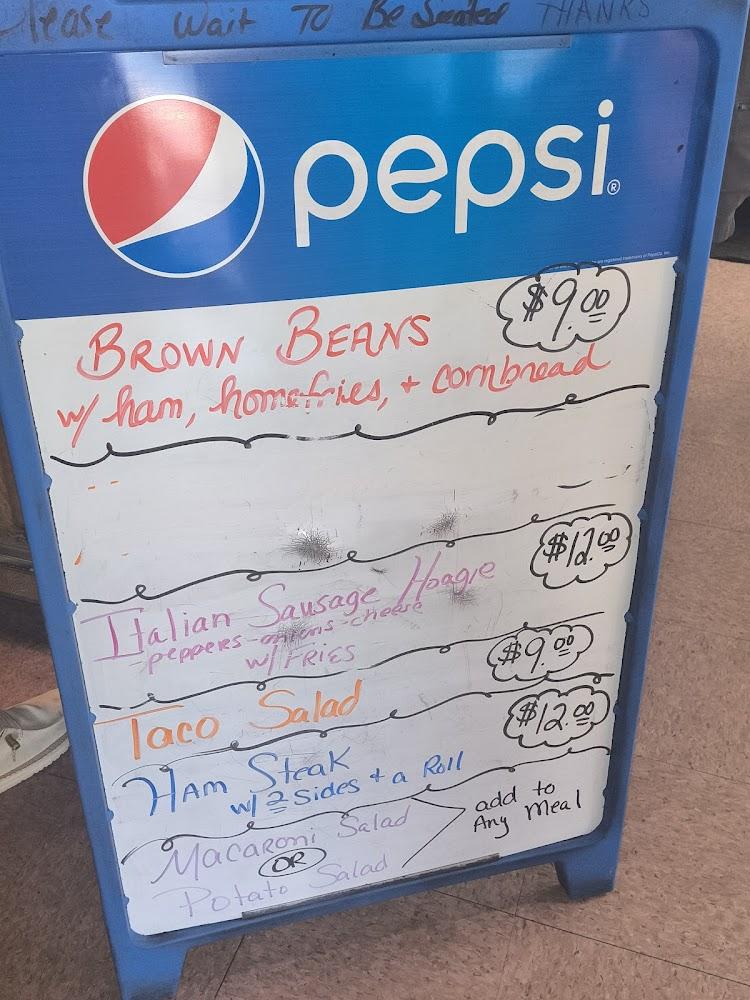 Please Wait To Be Seated THANKS
pepsi®
$9.00
BROWN BEANS
w/ ham, homefries, + cornbread
$12.00
Italian Sausage Hoagie
-peppers-onions-cheese
w/ FRIES
$9.00
Taco Salad
$12.00
HAM Steak
w/ 2 Sides + a Roll
Macaroni Salad
OR
Potato Salad
add to
Any Meal